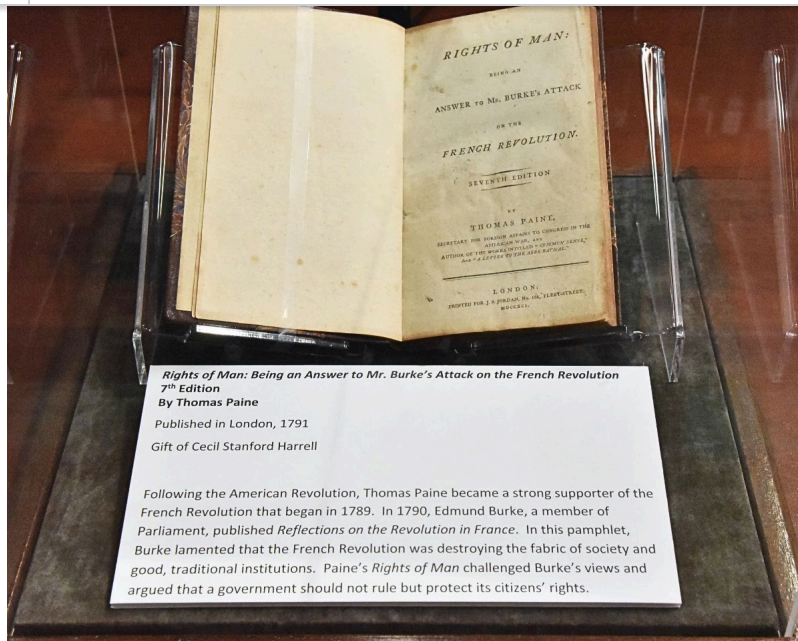 RIGHTS OF MAN:
BEING AN
ANSWER TO MR. BURKE'S ATTACK
ON THE
FRENCH REVOLUTION.
SEVENTH EDITION
BY
THOMAS PAINE,
SECRETARY FOR FOREIGN AFFAIRS TO CONGRESS IN THE
AMERICAN WAR, AND
AUTHOR OF THE WORKS INTITLED "COMMON SENSE,"
AND "A LETTER TO THE ABBE RAYNAL."
LONDON:
PRINTED FOR J. S. JORDAN, No. 166, FLEET-STREET.
MDCCXCI.
Rights of Man: Being an Answer to Mr. Burke's Attack on the French Revolution
7th Edition
By Thomas Paine
Published in London, 1791
Gift of Cecil Stanford Harrell
Following the American Revolution, Thomas Paine became a strong supporter of the
French Revolution that began in 1789. In 1790, Edmund Burke, a member of
Parliament, published Reflections on the Revolution in France. In this pamphlet,
Burke lamented that the French Revolution was destroying the fabric of society and
good, traditional institutions. Paine's Rights of Man challenged Burke's views and
argued that a government should not rule but protect its citizens' rights.